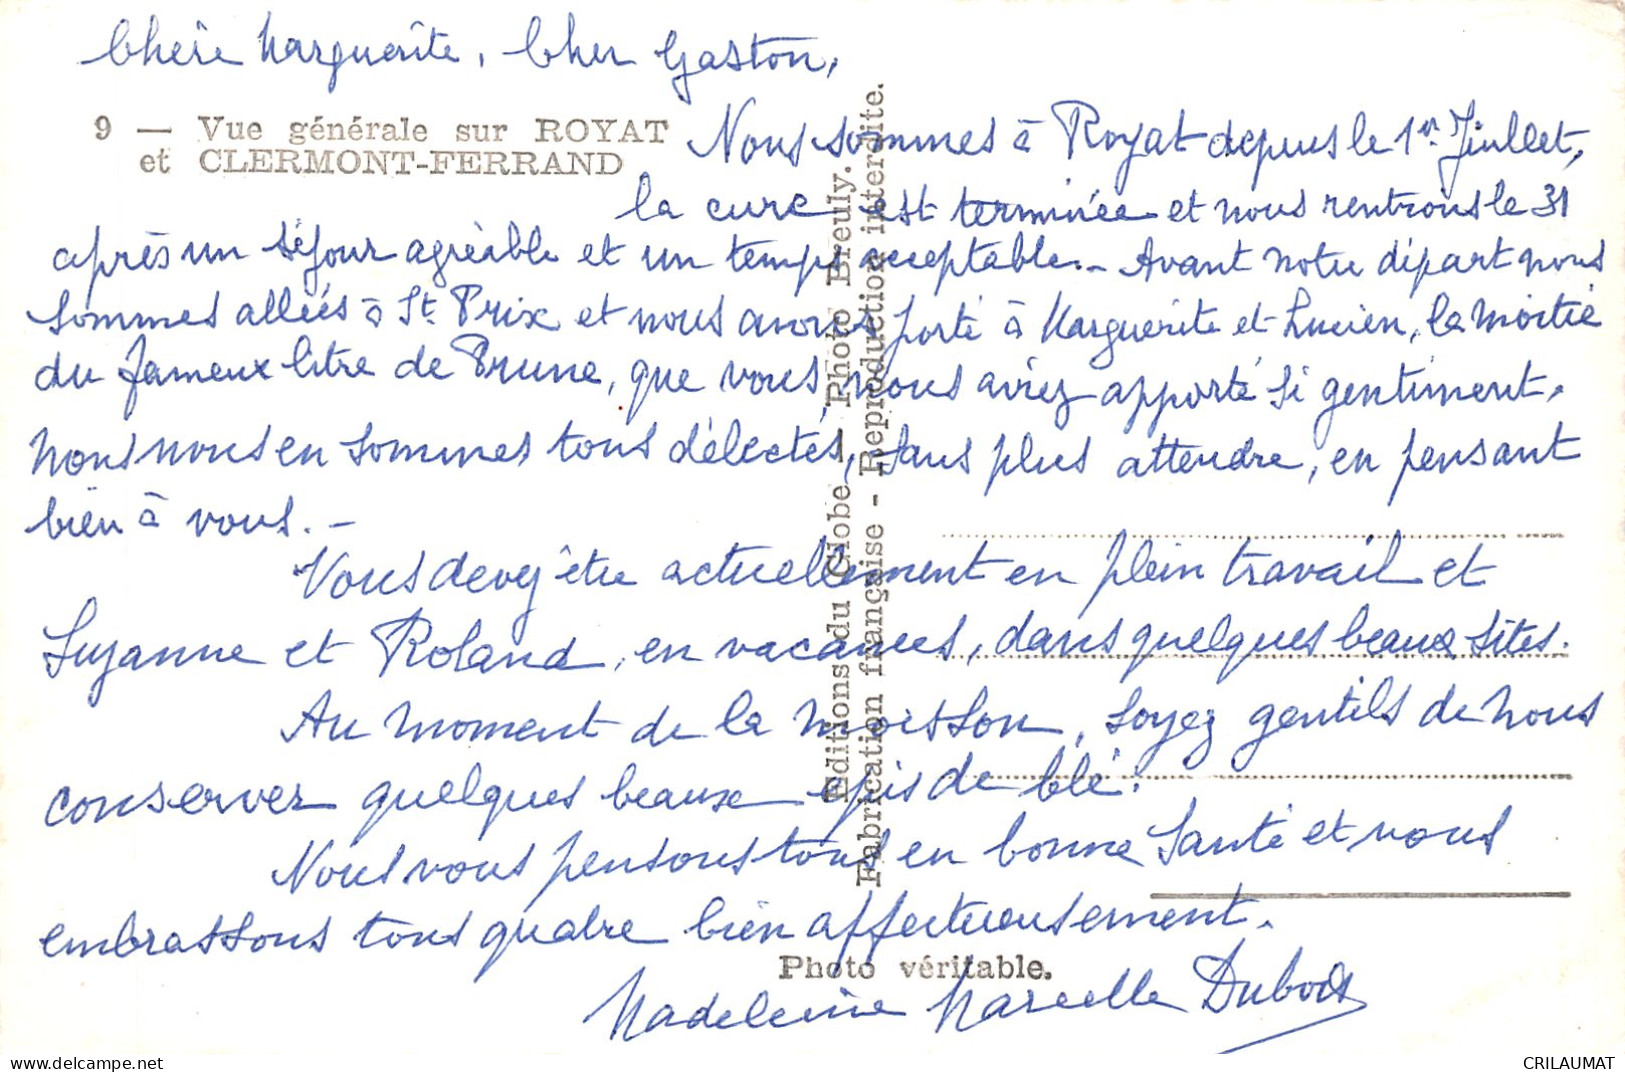 Chère Marguerite, Cher Gaston,
9 — Vue générale sur ROYAT
et CLERMONT-FERRAND
Nous sommes à Royat depuis le 1er Juillet,
la cure est terminée et nous rentrons le 31
après un séjour agréable et un temps acceptable. - Avant notre départ nous
sommes allées à St. Prix et nous avons porté à Marguerite et Lucien, la moitié
du fameux litre de Prune, que vous, nous aviez apporté si gentiment.
Nous nous en sommes tous délectés, sans plus attendre, en pensant
bien à vous. -
Vous devez être actuellement en plein travail et
Suzanne et Roland, en vacances, dans quelques beaux sites.
Au moment de la moisson, soyez gentils de nous
conserver quelques beaux épis de blé.
Nous vous pensons tous en bonne Santé et vous
embrassons tous quatre bien affectueusement.
Madeleine Marcelle Dubois
Editions du Globe - Photo Breuly.
Fabrication française - Reproduction interdite.
Photo véritable.
www.delcampe.net
CRILAUMAT